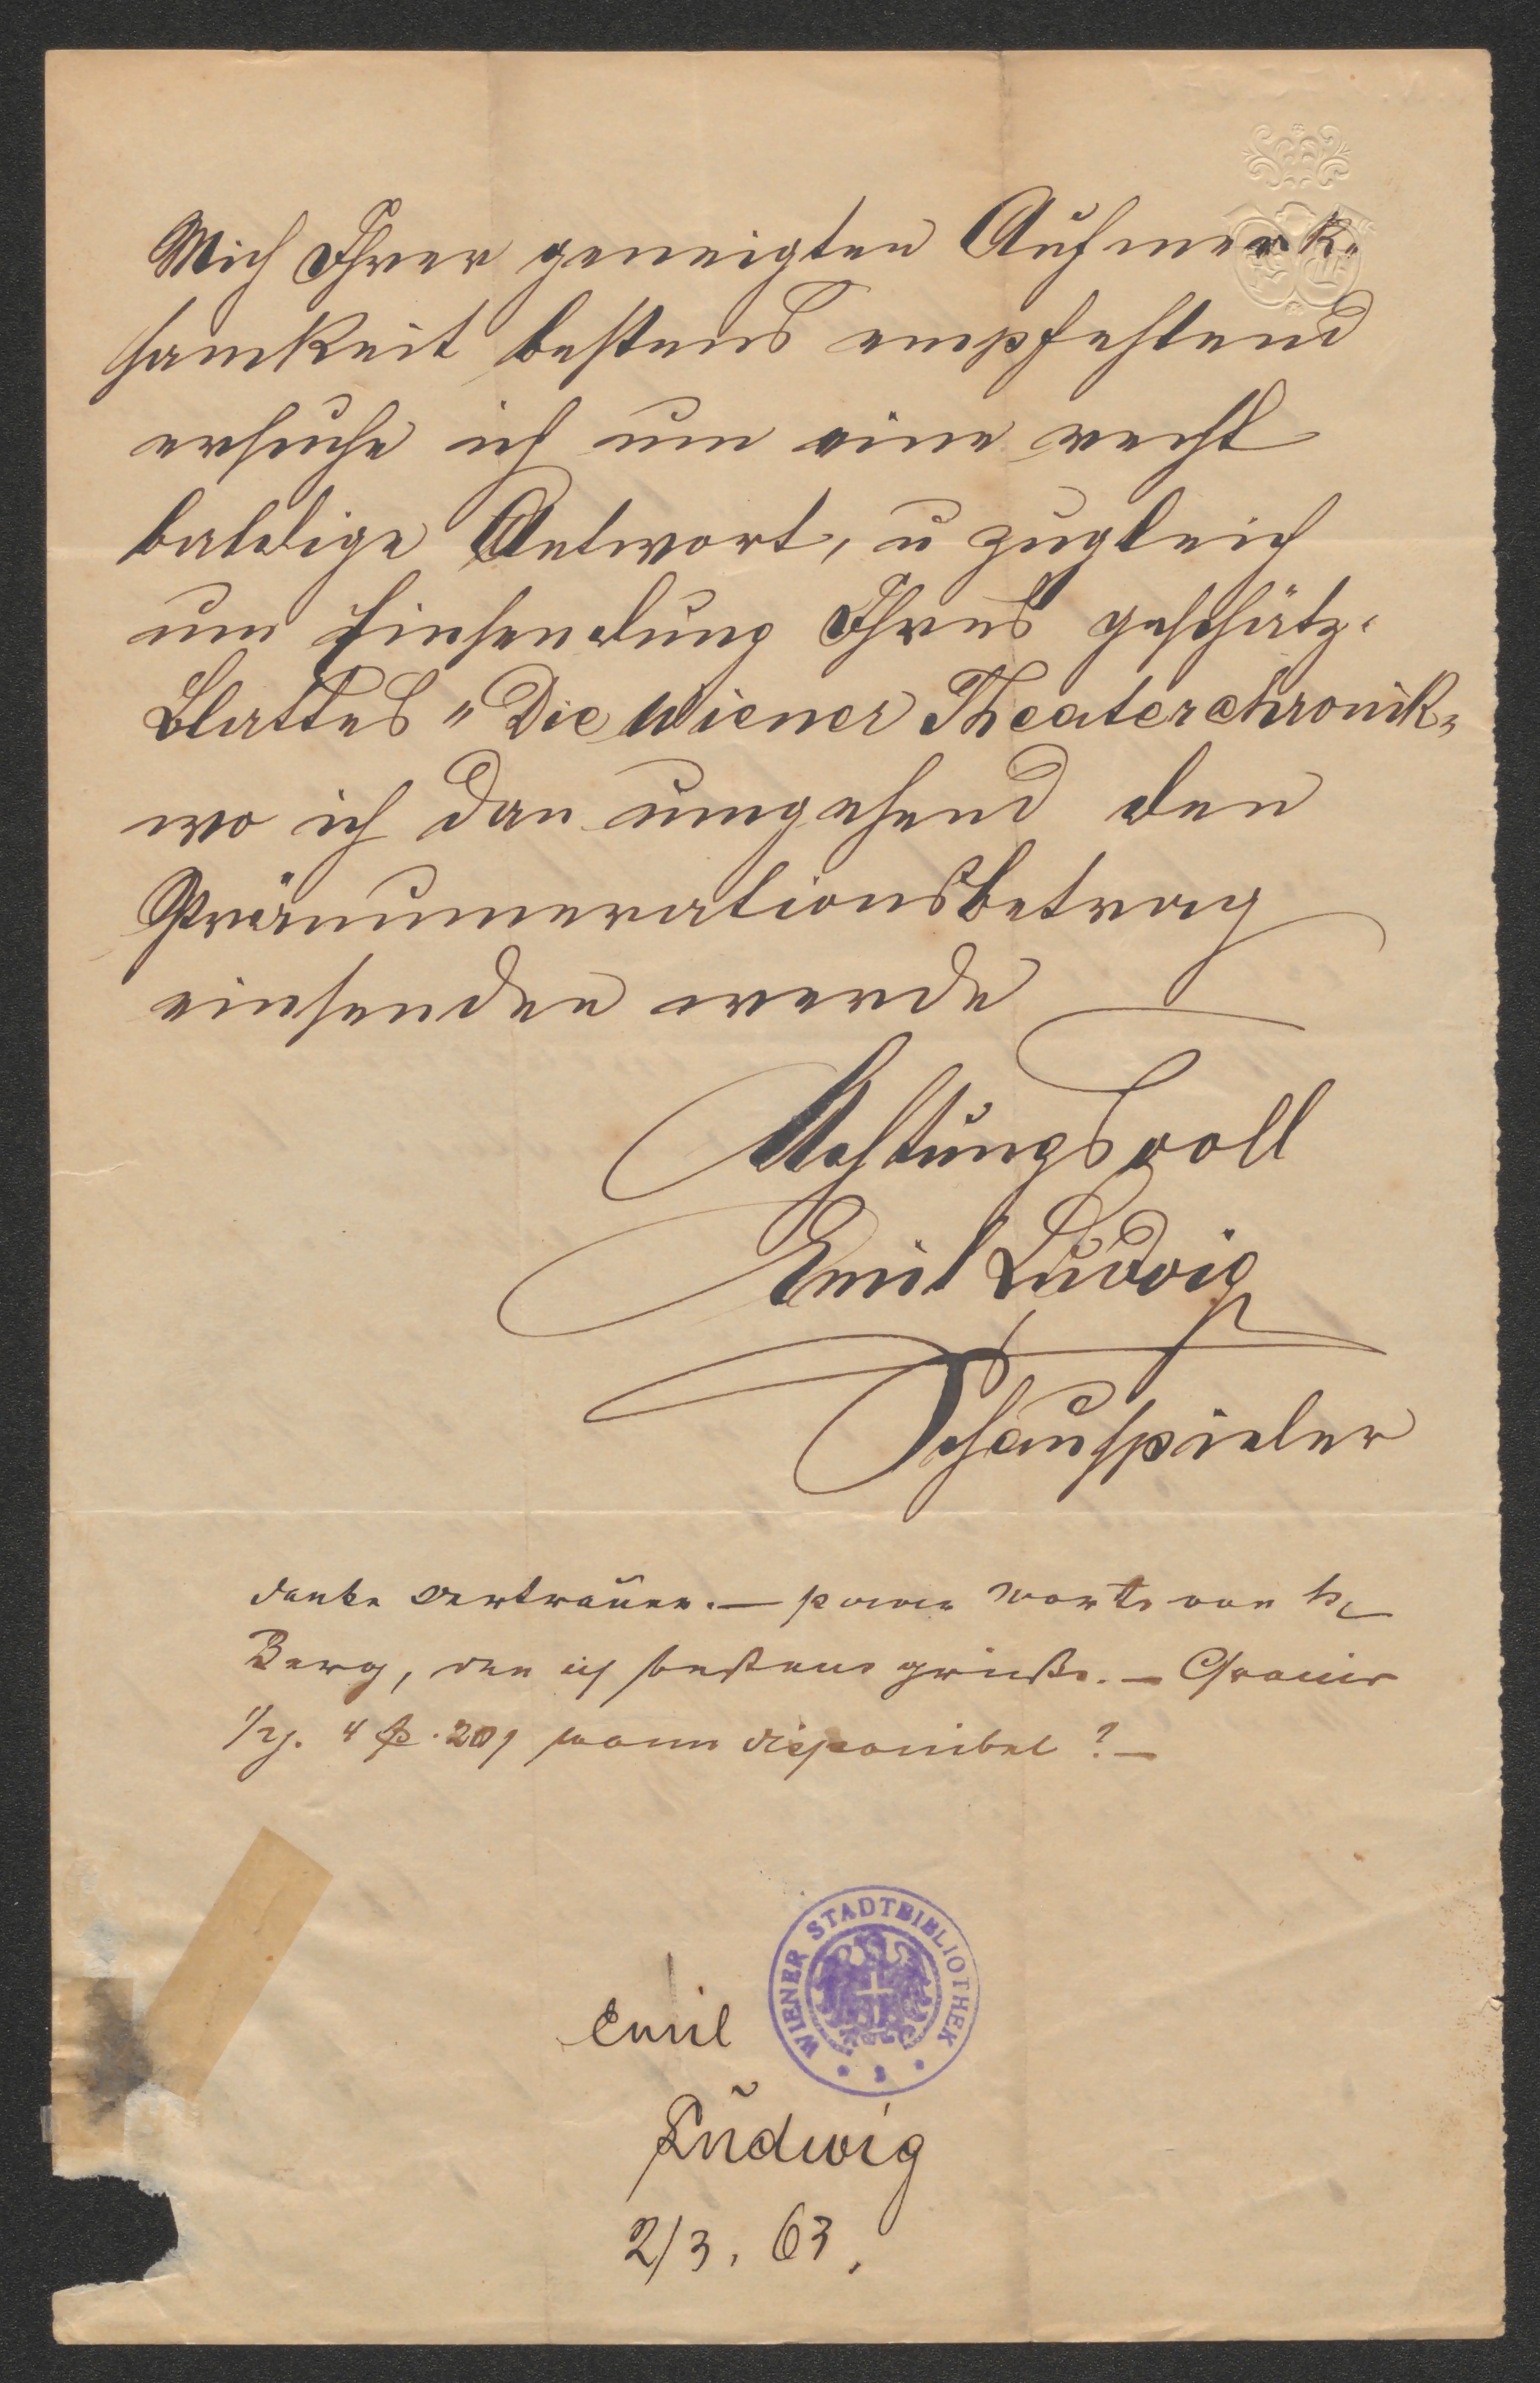 Mich Ihrer geneigten Aufmerk-
samkeit bestens empfehlend
ersuche ich um eine recht
baldige Antwort, u zugleich
um Einsendung Ihres geschätz.
Blattes "Die Wiener Theaterchronik"
wo ich dan umgehend den
Pränumerationsbetrag
einsenden werde
Achtungsvoll
Emil Ludwig
Schauspieler
danke Vertrauen. — warte von H
Berg, den ich bestens grüße. —
wann disponibel? —
WIENER STADTBIBLIOTHEK
Emil
Ludwig
2/3. 63.